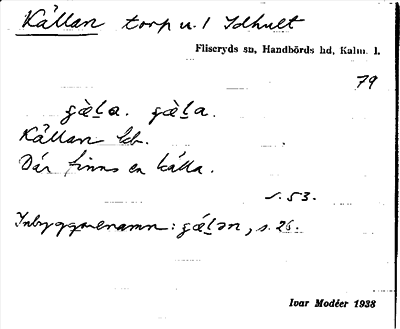 Källan torp u. 1 Idhult
Fliseryds sn, Handbörds hd, Kalm. l.
79
Källan
Där finns en källa.
s. 53.
Inbyggarenamn: , s. 26.
Ivar Modéer 1938